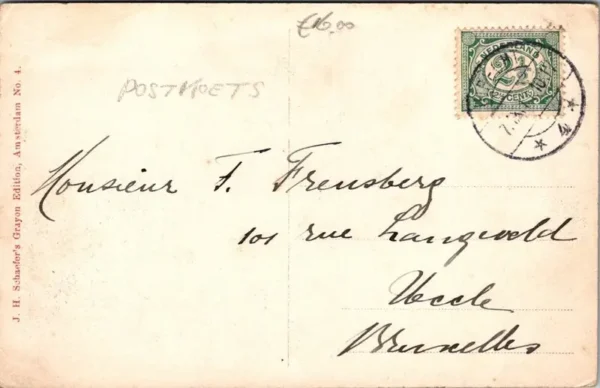 €16,00
POSTKOETS
NEDERLAND
2½
CENT
Monsieur F. Frensberg
101 rue Langeveld
Uccle
Bruxelles
J. H. Schaefer's Grayon Edition, Amsterdam No. 4.